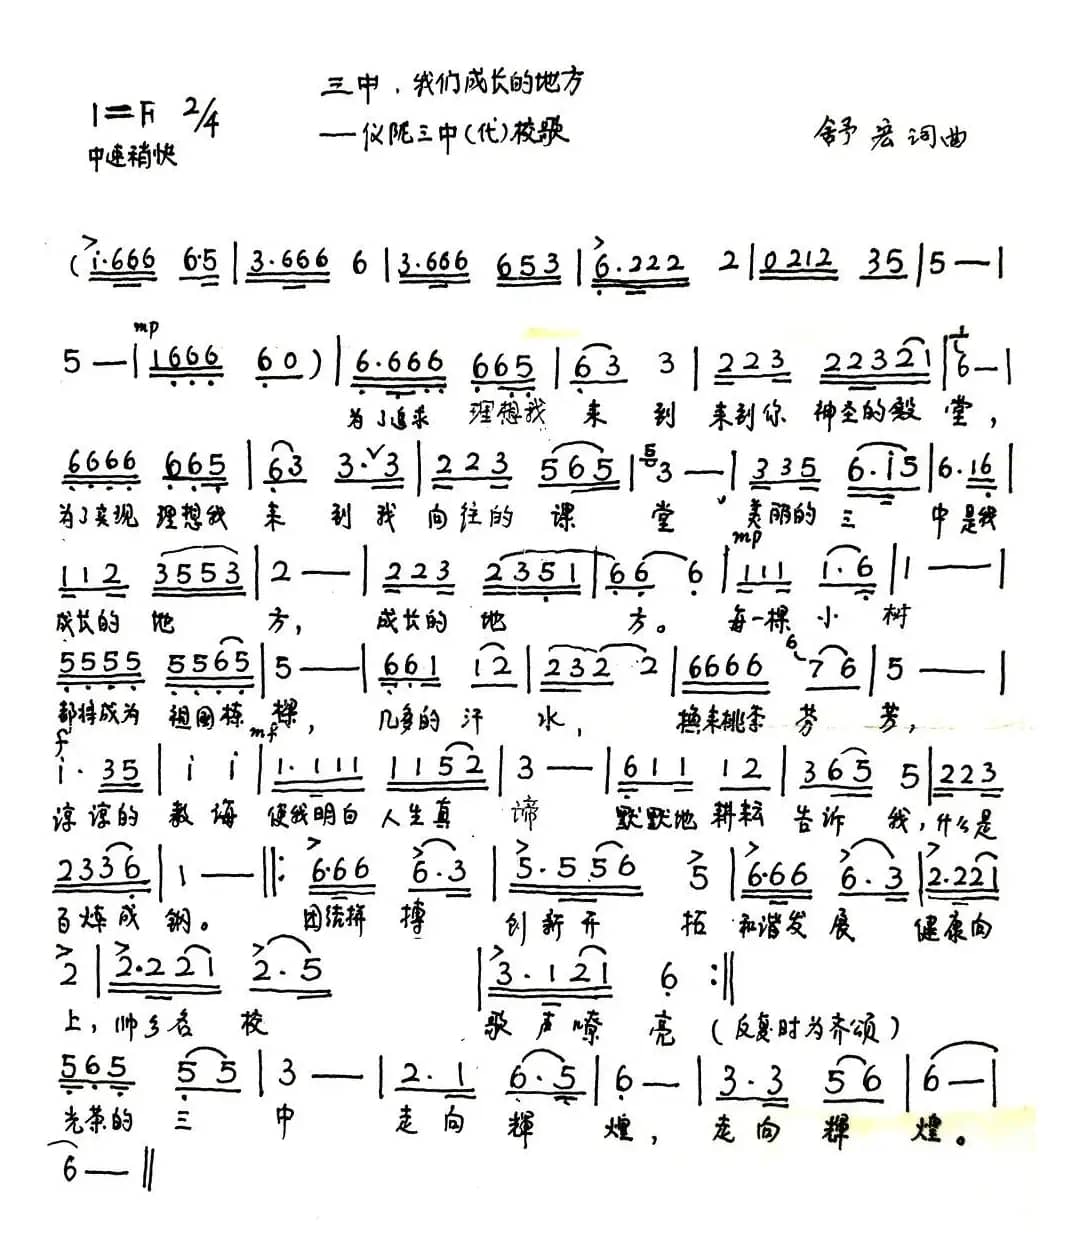 三中，我们成长的地方
1=F 2/4
——仪陇三中(代)校歌
舒宏词曲
中速稍快
( i·666 6·5 | 3·666 6 | 3·666 653 | 6·222 2 | 0212 35 | 5 — |
mp
5 — | 1666 60 ) | 6·666 665 | 63 3 | 223 22321 | 6 — |
为了追求 理想我 来 到 来到你 神圣的殿 堂，
6666 665 | 63 3·3 | 223 565 | 3 — | 335 6·i5 | 6·16 |
为了实现 理想我 来 到我 向往的 课 堂 美丽的 三 中是我
mp
112 3553 | 2 — | 223 2351 | 66 6 | 111 1·6 | 1 — |
成长的 地 方， 成长的 地 方。 每一棵 小 树
5555 5565 | 5 — | 661 12 | 232 2 | 6666 76 | 5 — |
都将成为 祖国栋 樑， 几多的 汗 水， 换来桃李 芬 芳，
f mf
i·35 | i i | 1·111 1152 | 3 — | 611 12 | 365 5 | 223
谆谆的 教 诲 使我明白 人生真 谛 默默地 耕耘 告诉 我，什么是
2336 | 1 — ‖: 6·66 6·3 | 5·556 5 | 6·66 6·3 | 2·221
百炼成 钢。 团结拼 搏 创新开 拓 和谐发 展 健康向
2 | 2·221 2·5 | 3·121 6 :‖
上，帅乡名 校 歌声嘹 亮 (反复时为齐颂)
565 55 | 3 — | 2·1 6·5 | 6 — | 3·3 56 | 6 — |
光荣的 三 中 走向 辉 煌，走向 辉 煌。
6 — ‖